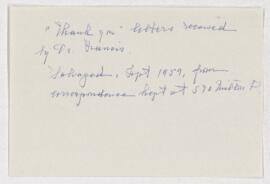 "Thank you" letters received
by Dr. Francis.
Salvaged, Sept 1959, from
correspondence kept at 570